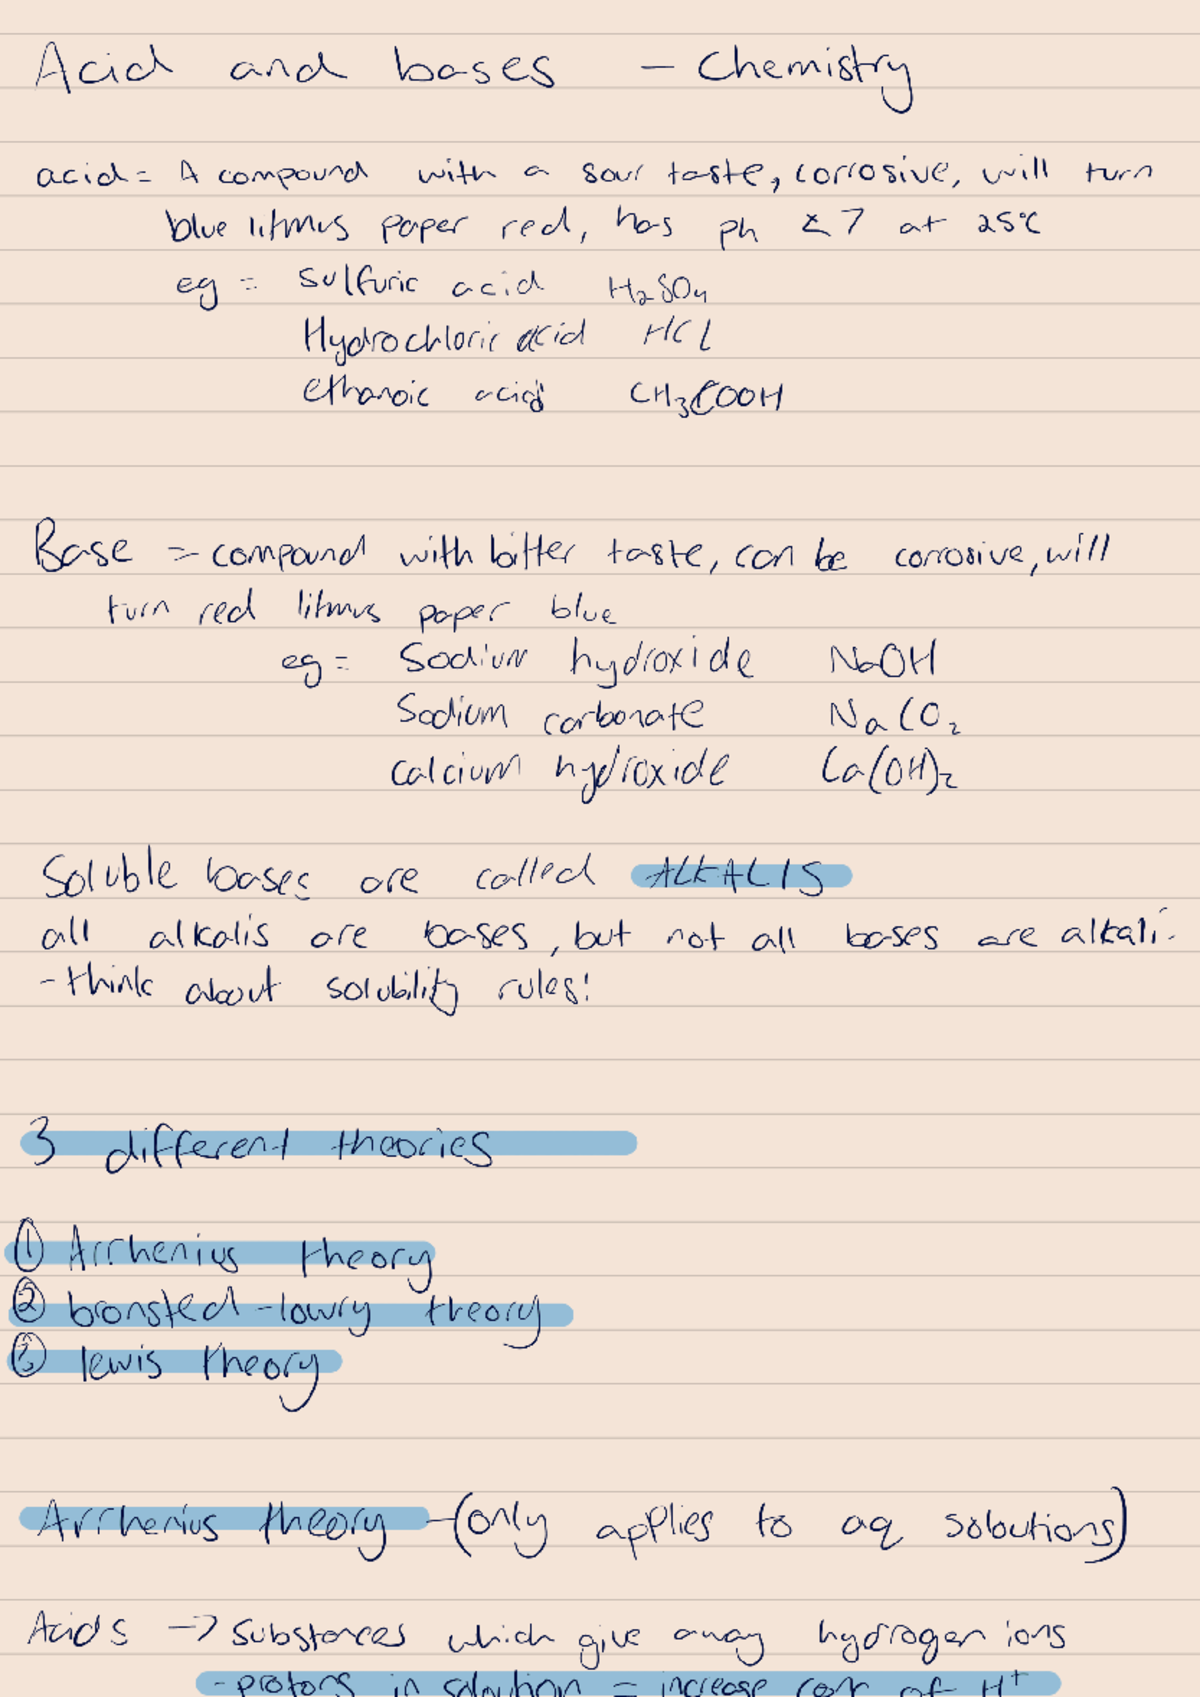 Acid and bases - Chemistry
acid = A compound with a sour taste, corrosive, will turn
blue litmus paper red, has ph ≤ 7 at 25°C
eg = Sulfuric acid H₂SO₄
Hydrochloric acid HCl
ethanoic acid CH₃COOH
Base = compound with bitter taste, can be corrosive, will
turn red litmus paper blue
eg = Sodium hydroxide NaOH
Sodium carbonate NaCO₂
calcium hydroxide Ca(OH)₂
Soluble bases are called ALKALIS
all alkalis are bases, but not all bases are alkali.
- think about solubility rules!
3 different theories
① Arrhenius theory
② bronsted-lowry theory
③ lewis theory
Arrhenius theory - (only applies to aq soloutions)
Acids → substances which give away hydrogen ions
- protons in soloution = increase conc of H⁺